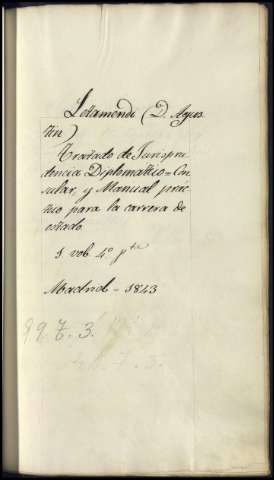 Letamendi (D. Agus
tin)
Tratado de Jurispru
dencia Diplomatico-Con
sular, y Manual prác
tico para la carrera de
estado.
1 vol. 4º pta
Madrid - 1843
997.3.